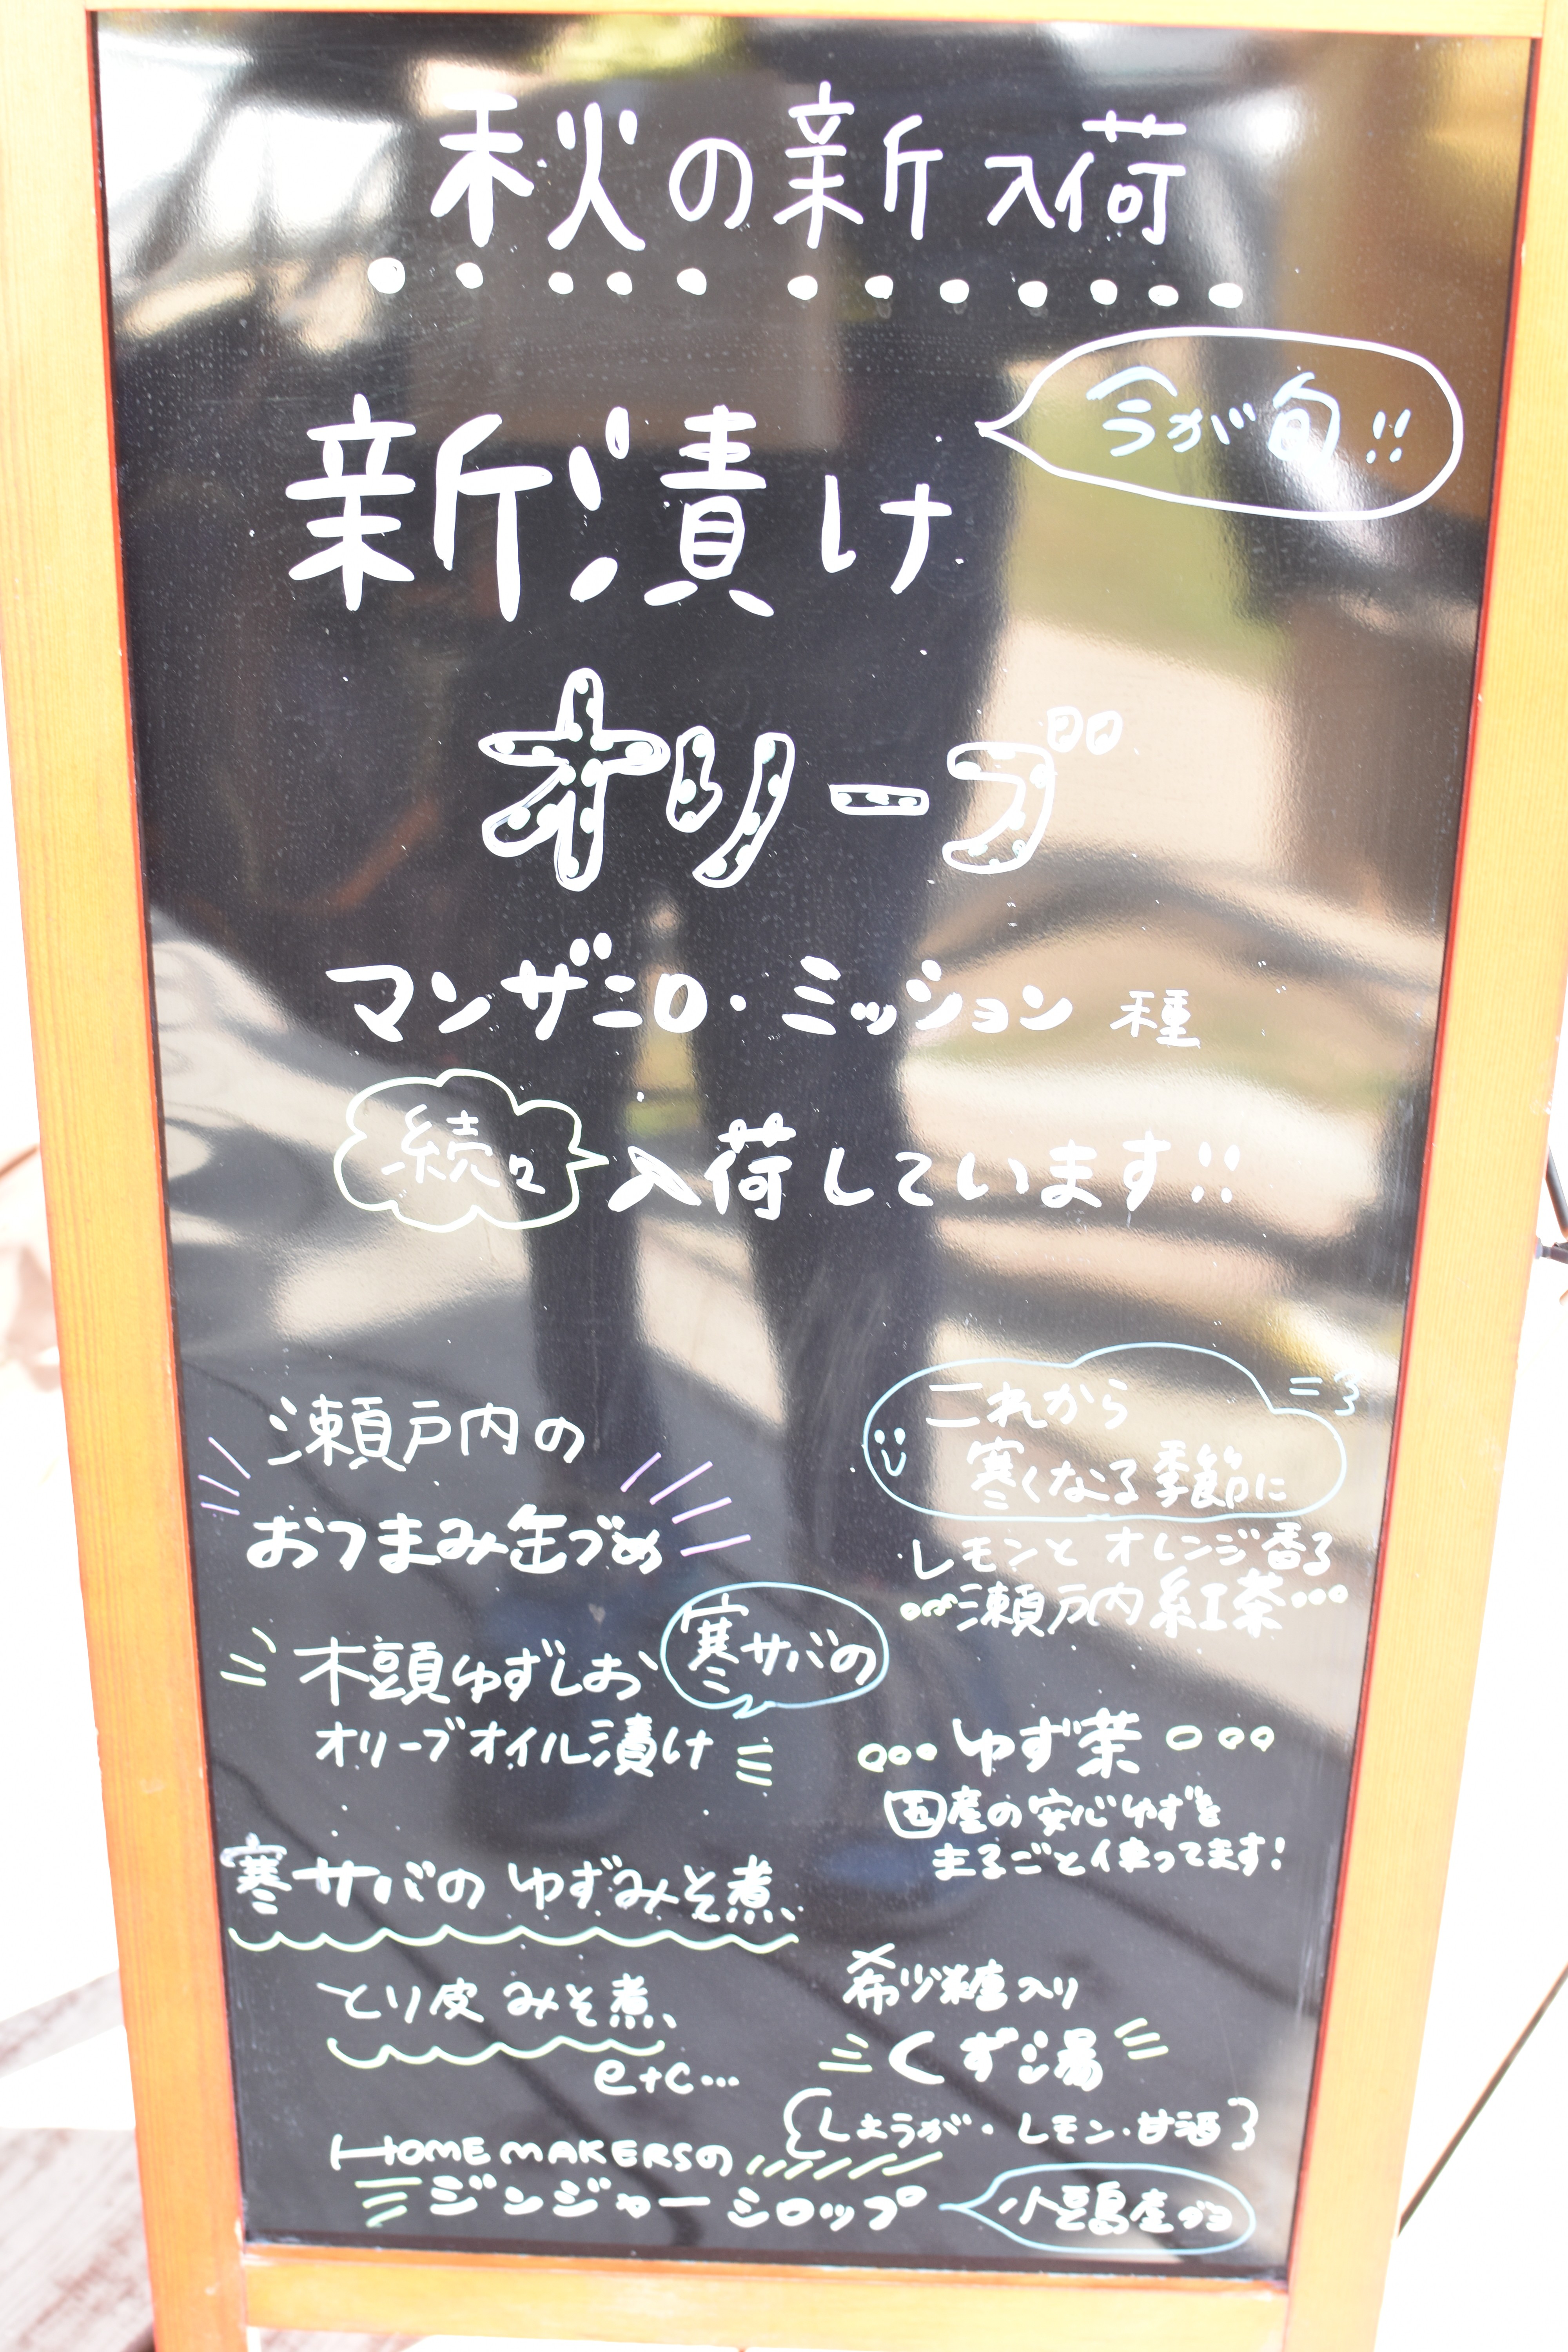 秋の新入荷
今が旬!!
新漬け
オリーブ
マンザニロ・ミッション 種
続々入荷しています!!
瀬戸内の
おつまみ缶づめ
木頭ゆずしお
寒サバの
オリーブオイル漬け
寒サバの ゆずみそ煮
とり皮 みそ煮
etc…
これから
寒くなる季節に
レモンと オレンジ香る
瀬戸内紅茶
ゆず茶
国産の安心ゆずを
まるごと使ってます!
希少糖入り
くず湯
{しょうが・レモン・甘酒}
HOMEMAKERSの
ジンジャーシロップ
小豆島産